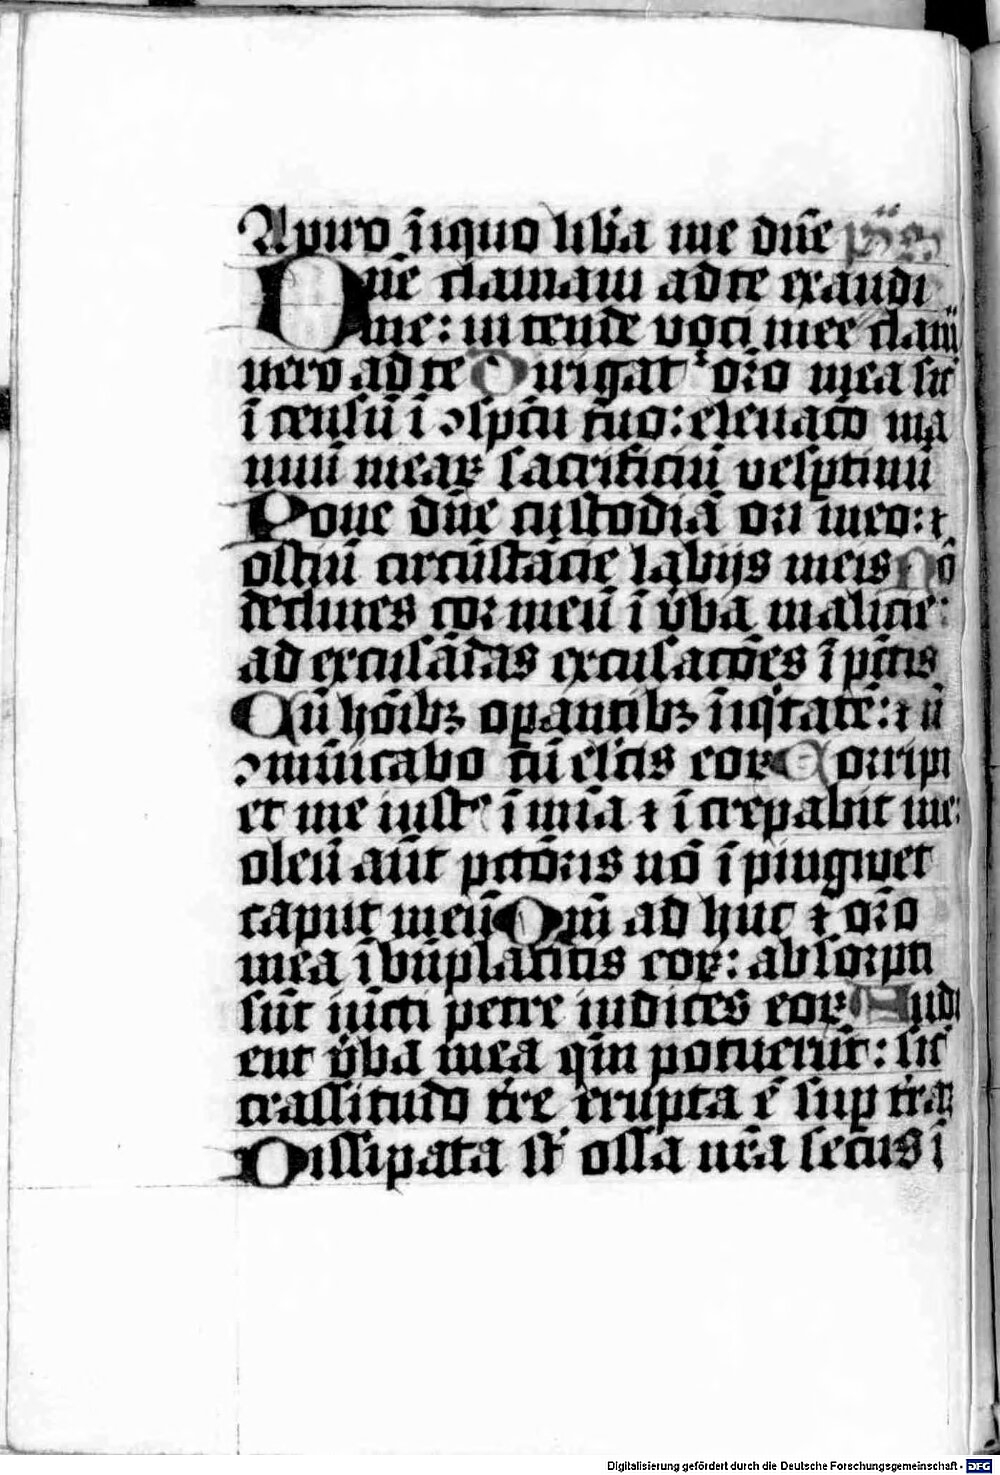 A viro īiquo lib̄a me dn̄e ps̄
Dn̄e clamaui ad te exaudi
me: intende voci mee clam̄
uero ad te Dirigat᷑ or̄o mea sic̄
ī censū ī ↄspc̄tu tuo: eleuatō ma
nuū meaꝝ sacrificiū vesp̱tinū
Pone dn̄e custodiā ori meo: ⁊
ostiū circūstācie labijs meis Nō
declines cor meū ī v̄ba malicie:
ad excusādas excusatōes ī pc̄tis
Cū hōibꝫ oꝑantibꝫ īiqͥtatē: ⁊ nō
ↄmūicabo cū elc̄tis eoꝝ Corripi
et me iustꝰ ī mīa ⁊ īcrepabit me:
oleū aūt pctōris nō īpinguet
caput meū Qm̄ ad huc ⁊ or̄o
mea ī bn̄placitis eoꝝ: absorpti
sūt iūcti petre iudices eoꝝ Audi
ent v̄ba mea qm̄ potuerūt: sic̄
crassitudo tr̄e erupta ē suꝑ tr̄aꝫ
Dissipata st̄ ossa nr̄a secus ī
Digitalisierung gefördert durch die Deutsche Forschungsgemeinschaft - DFG